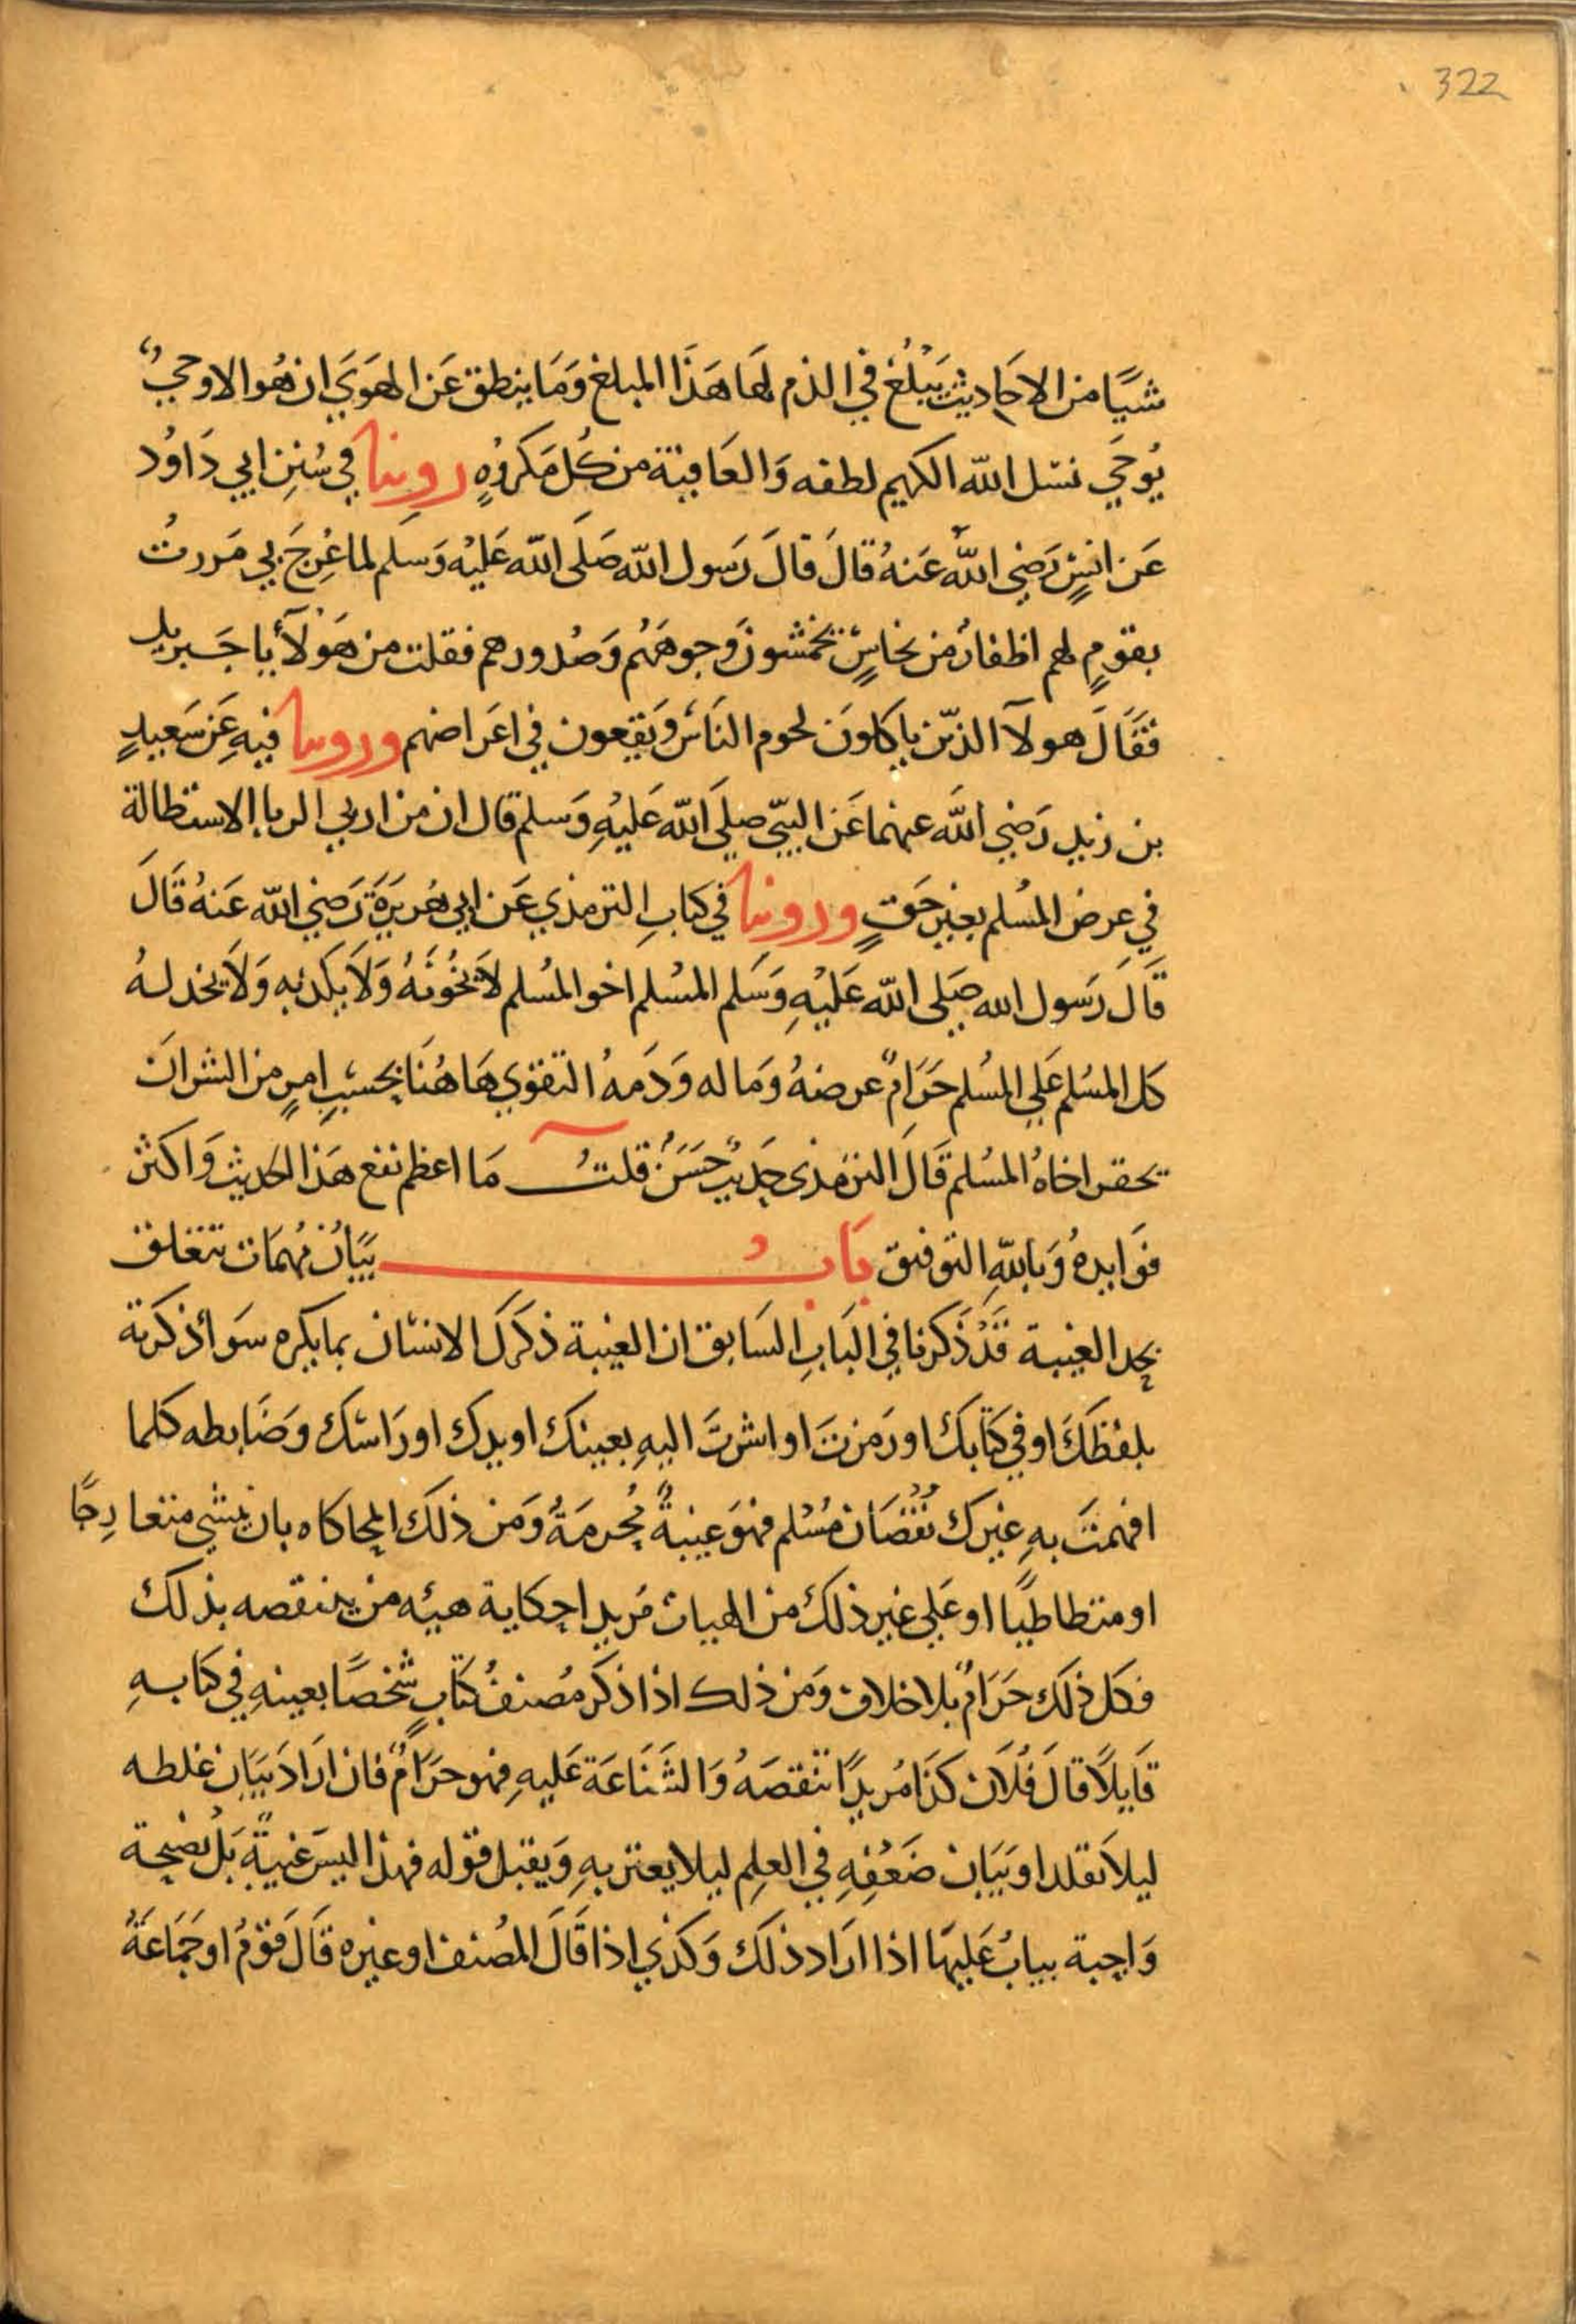 322
شيًا من الاحَاديث يَبْلُغ في الذم لهَا هَذَا المبلغ وَمَا ينطق عَن الهَوَي ان هُو الا وحيٌ
يُوحَي نسل الله الكريم لطفه وَالعَافية من كُل مَكروُهٍ روينا في سُننِ ابي دَاوُد
عَن انسٍ رَضي اللهُ عَنهُ قالَ قالَ رَسول الله صَلَى الله عَليْه وَسَلم لما عُرِجَ بي مَررتُ
بقومٍ لهم اظفارٌ من نحاسٍ يخمشونَ وجوهَهُم وَصُدورهم فقلت من هَوْلآء يا جَبريل
فقَالَ هولآ الذّين ياكلونَ لحوم النَاسَ وَيَقعون في اعَراضهم وروينا فيهِ عَن سَعيدٍ
بن زيد رَضي اللَه عنهما عَن النبيّ صلَي اللَه عَليْهِ وَسلم قال ان من اربي الربا الاستطالة
في عِرض المسُلم بغير حَقٍ وروينا في كتابِ الترمذي عَن ابي هُريرَةَ رَضي الله عَنهُ قَالَ
قَالَ رَسول الله صَلى الله عَليْهِ وَسَلم المسُلم اخو المسُلم لَا يخُونَهُ وَلَا يكذبه وَلَا يخدلهُ
كل المسُلم عَلي المسُلم حَرَامٌ عرضهُ وَماله وَدَمهُ التقوي هَاهُنَا بحسَبِ امرٍ من الشر ان
يحقر اخاهُ المسُلم قَالَ الترمذى حَديث حَسَنٌ قلتُ مَا اعظم نفع هَذا الحديث وَاكثر
فوَايدهُ وَبالله التوفيق بَابُ بيَانُ مُهمَات تتعَلق
بحد الغيبة قَدْ ذَكرنا في البَابِ السَابق ان الغيبة ذكَركَ الانسَان بما يكره سَوأ ذكرته
بلفظَكَ او في كتَابكَ او رَمزتَ او اشرتَ اليهِ بعينكَ او يدك او رَاسَك وضَابطه كلما
افهمتَ بهِ غيرك نُقْصَان مُسْلم فهوَ غيبةٌ مُحرمَةٌ وَمَن ذلكَ المحَاكاه بان يمشي متعارِجًا
او متطاطيًا او عَلي غير ذلكَ من الهيات مُريدا حكاية هيئه من يتنقصه بذلك
فكل ذلَك حَرَامٌ بلا خلاف وَمَن ذلك اذا ذكَر مُصنفُ كتَابٍ شخصًا بعينهِ في كتابهِ
قَايلًا قالَ فُلَان كذَا مُريدًا تنقصَهُ وَالشَنَاعَة عَليهِ فهو حرَامٌ فان ارَادَ بيَان غلطه
ليلَا يقلد او بيَان ضَعْفِهِ في العِلِم ليلا يغتر بهِ وَيقبل قوله فهذا ليسَ غيبةً بَلْ نصيحة
وَاجبة يبابُ عَليهَا اذا ارَاد ذلَك وَكذي اذا قَالَ المصُنف او غيره قَال قوْمٌ او جَماعَةٌ